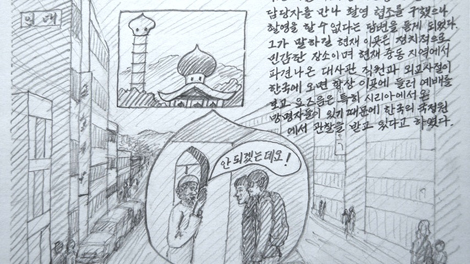 임대
담당자를 만나 촬영 협조를 구했으나
촬영을 할 수 없다는 답변을 듣게 되었다.
그가 말하길 현재 이곳은 정치적으로
민감한 장소이며 현재 중동 지역에서
파견나온 대사관 직원과 외교사절이
한국에 오면 항상 이곳에 들러 예배를
보고 요즈음은 특히 시리아에서 온
망명자들이 있기 때문에 한국의 국정원
에서 관찰을 받고 있다고 하였다.
안 되겠는데요!